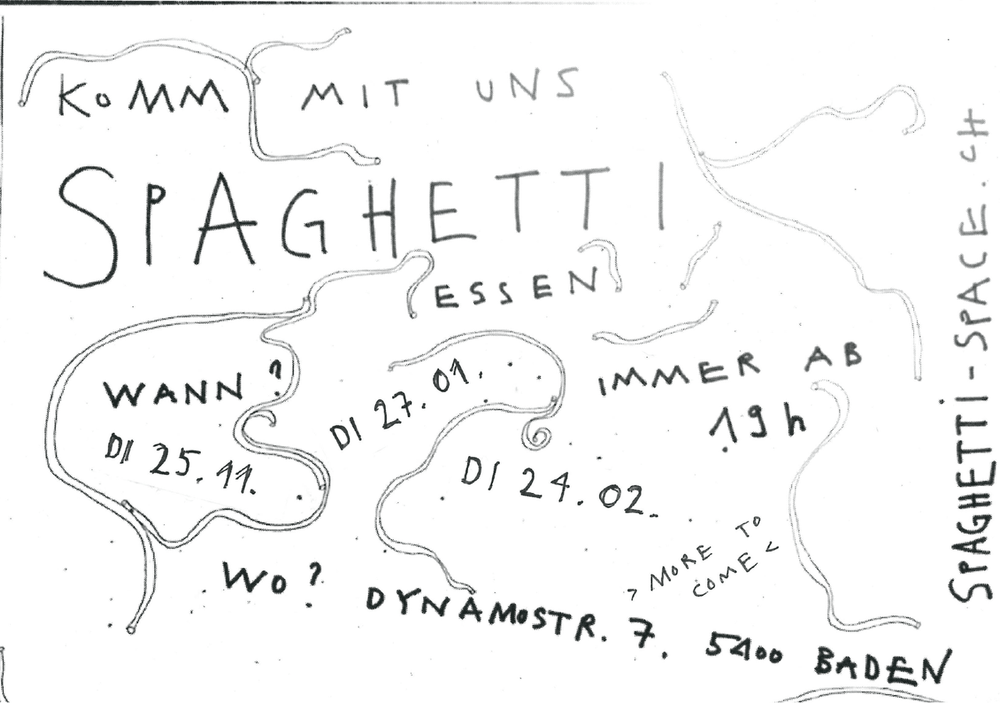 KOMM MIT UNS
SPAGHETTI
ESSEN
WANN?
DI 25.11.
DI 27.01.
DI 24.02.
IMMER AB
19h
> MORE TO
COME <
WO? DYNAMOSTR. 7. 5400 BADEN
SPAGHETTI-SPACE.CH